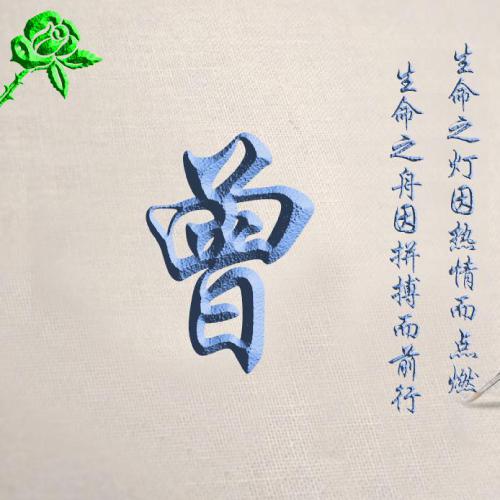 曾
生命之灯因热情而点燃
生命之舟因拼搏而前行